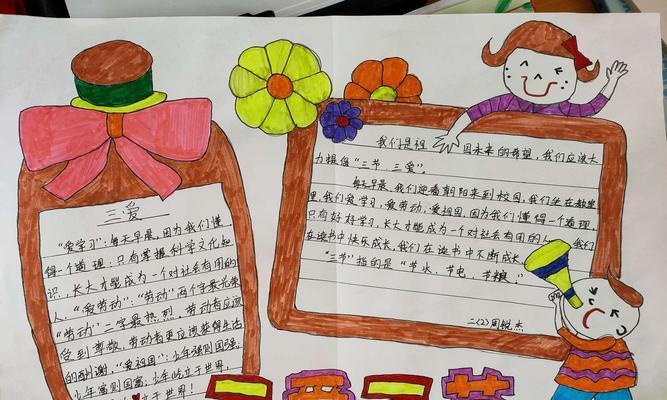 三爱
“爱学习”:每天早晨,因为我们懂
得一个道理:只有掌握科学文化知
识,长大才能成为一个对社会有用的
人。“爱劳动”:“劳动”两个字最光荣
“劳动”二字最热烈,劳动者应该
受到尊敬,劳动者更应该获得生活
的酬谢。“爱祖国”:少年强则国强;
少年富则国富;少年屹立于世界,
立于世界!
我们是祖 国未来的希望,我们应该大
力提倡“三节、三爱”。
每天早晨,我们迎着朝阳来到校园,我们坐在教室
里,我们爱学习,爱劳动,爱祖国,因为我们懂得一个道理,
只有好好学习,长大才能成为一个对社会有用的人 我们
在读书中快乐成长,我们在读书中不断成长。
“三节”指的是“节水、节电、节粮。”
二(2)周锐杰